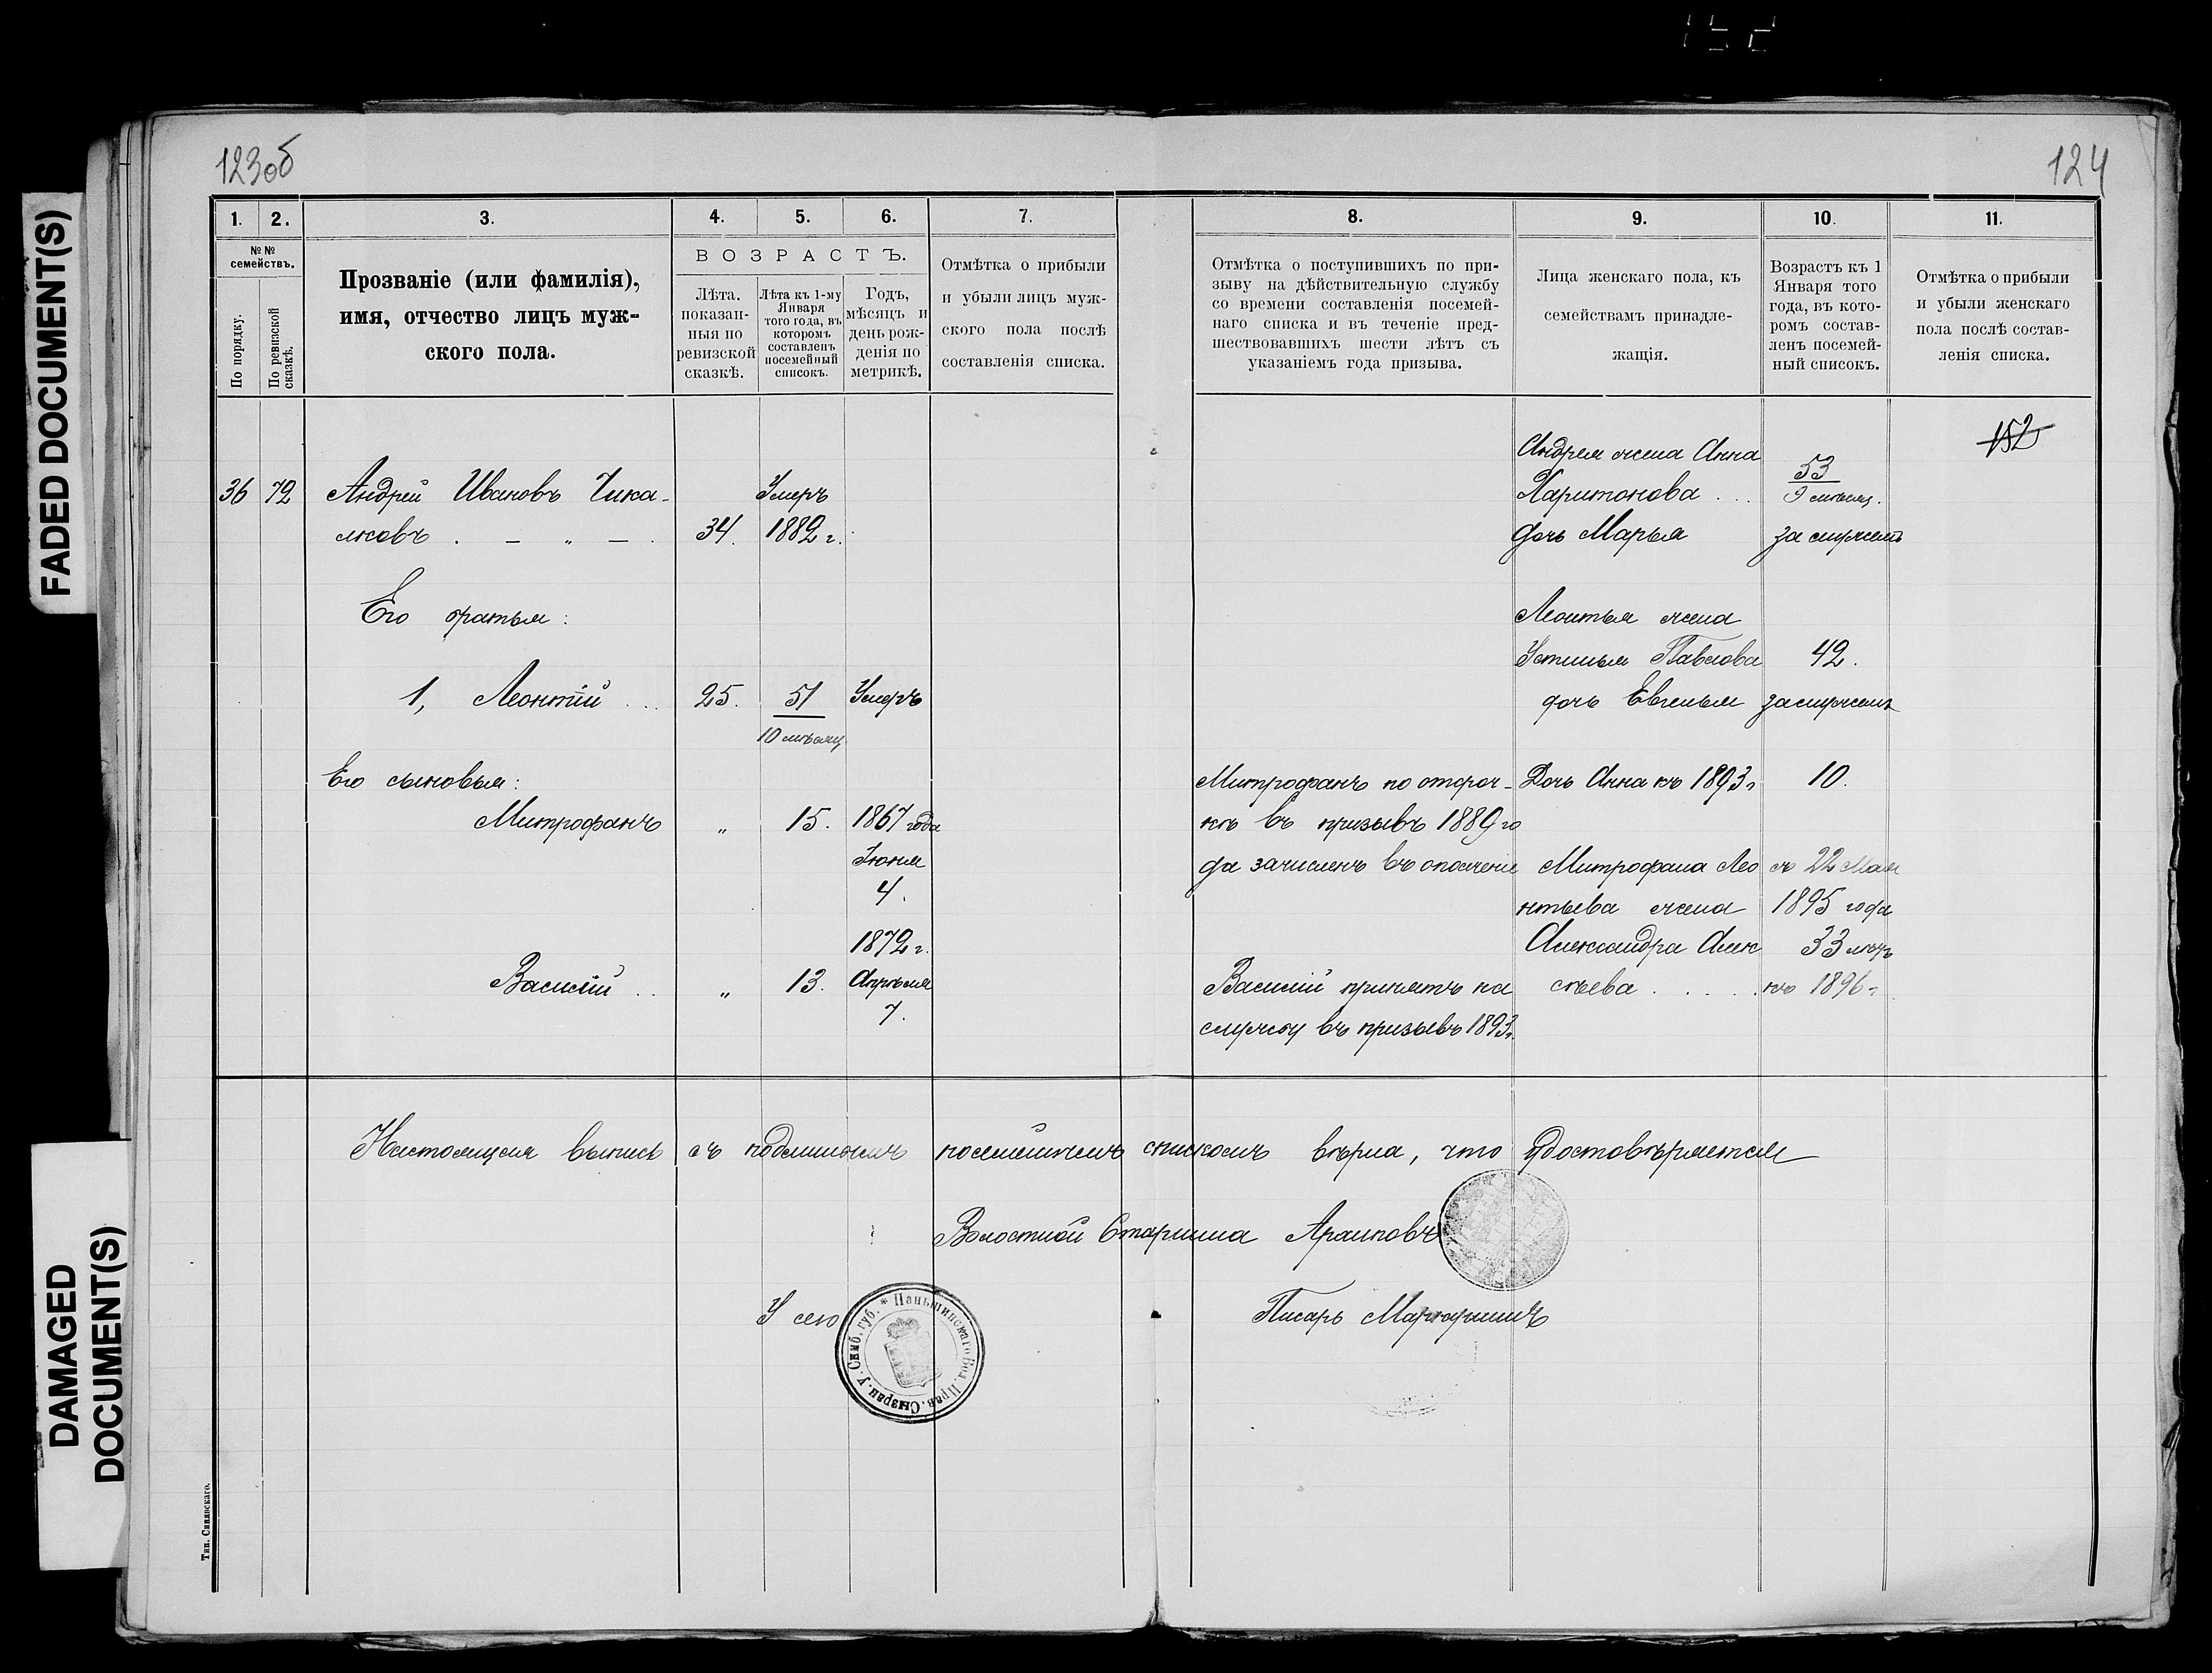 FADED DOCUMENT(S)
DAMAGED
DOCUMENT(S)
123об
124
1.
2.
3.
4.
5.
6.
7.
8.
9.
10.
11.
№№
семействъ.
По порядку.
По ревизской
сказкѣ.
Прозваніе (или фамилія),
имя, отчество лицъ муж-
ского пола.
ВОЗРАСТЪ.
Лѣта.
показан-
ныя по
ревизской
сказкѣ.
Лѣта къ 1-му
Января
того года, въ
которомъ
составленъ
посемейный
списокъ.
Годъ,
мѣсяцъ и
день рож-
денія по
метрикѣ.
Отмѣтка о прибыли
и убыли лицъ муж-
ского пола послѣ
составленія списка.
Отмѣтка о поступившихъ по при-
зыву на дѣйствительную службу
со времени составленія посемей-
наго списка и въ теченіе пред-
шествовавшихъ шести лѣтъ съ
указаніемъ года призыва.
Лица женскаго пола, къ
семействамъ принадле-
жащія.
Возрастъ къ 1
Января того
года, въ кото-
ромъ состав-
ленъ посемей-
ный списокъ.
Отмѣтка о прибыли
и убыли женскаго
пола послѣ состав-
ленія списка.
152
36 72 Андрей Ивановъ Чика-
лковъ . – „ – . 34. Умеръ
1882 г.
Андрея жена Анна
Харитонова . . . 53
9 мѣсяц.
дочь Марья замужемъ
Его братья:
1, Леонтій . . . 25. 51 Умеръ
10 мѣсяц.
Леонтья жена
Устинья Павлова 42.
дочь Евгенья замужемъ
Его сыновья:
Митрофанъ „ 15. 1867 года
Іюня
4.
Митрофанъ по отсроч-
кѣ въ призывъ 1889 го
да зачисленъ въ ополченіе
Дочь Анна къ 1893 г. 10.
Митрофана Лео
нтьева жена
Александра Алек
сѣева . . . .
съ 22 Мая
1895 года
33 лѣтъ
къ 1896 г.
Василій . . „ 13. 1872 г.
Апрѣля
7.
Василій принятъ на
службу въ призывъ 1893 г.
Настоящая выпись съ подлиннымъ посемейнымъ спискомъ вѣрна, что удостовѣряется
Волостной Старшина Архиповъ
У сего
Писарь
* Паньшинскаго Вол. Прав. Сызран. у. Симб. губ.
Тип. Синявскаго.